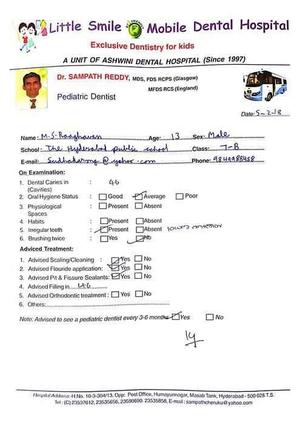 Little Smile Mobile Dental Hospital
Exclusive Dentistry for kids
A UNIT OF ASHWINI DENTAL HOSPITAL (Since 1997)
Dr. SAMPATH REDDY, MDS, FDS RCPS (Glasgow)
MFDS RCS (England)
Pediatric Dentist
Date: 5-2-18
Name: M.S. Raaghavan Age: 13 Sex: Male
School: The Hyderabad public school Class: 7-B
E-mail: @yahoo.com Phone:
On Examination:
1. Dental Caries in (Cavities) : 46
2. Oral Hygiene Status : Good Average Poor
3. Physiological Spaces : Present Absent
4. Habits : Present Absent
5. Irregular teeth : Present Absent
6. Brushing twice : Yes No
Adviced Treatment:
1. Advised Scaling/Cleaning : Yes No
2. Advised Fluoride application : Yes No
3. Advised Pit & Fissure Sealants : Yes No
4. Advised Filling in 46
5. Advised Orthodontic treatment : Yes No
6. Others:
Note: Advised to see a pediatric dentist every 3-6 months Yes No
Hospital Address: H.No. 10-3-304/13, Opp: Post Office, Humayunnagar, Masab Tank, Hyderabad - 500 028 T.S.
Tel: (C) 23537612, 23535656, 23590690 23535858, E-mail: sampathcheruku@yahoo.com